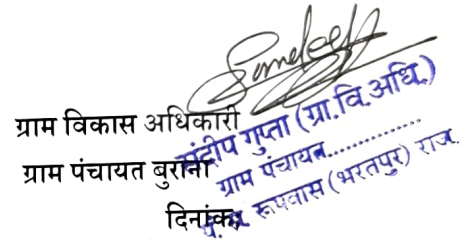 ग्राम विकास अधिकारी
ग्राम पंचायत बुराना
दिनांक
संदीप गुप्ता (ग्रा.वि.अधि.)
ग्राम पंचायत...............
रूपवास (भरतपुर) राज.